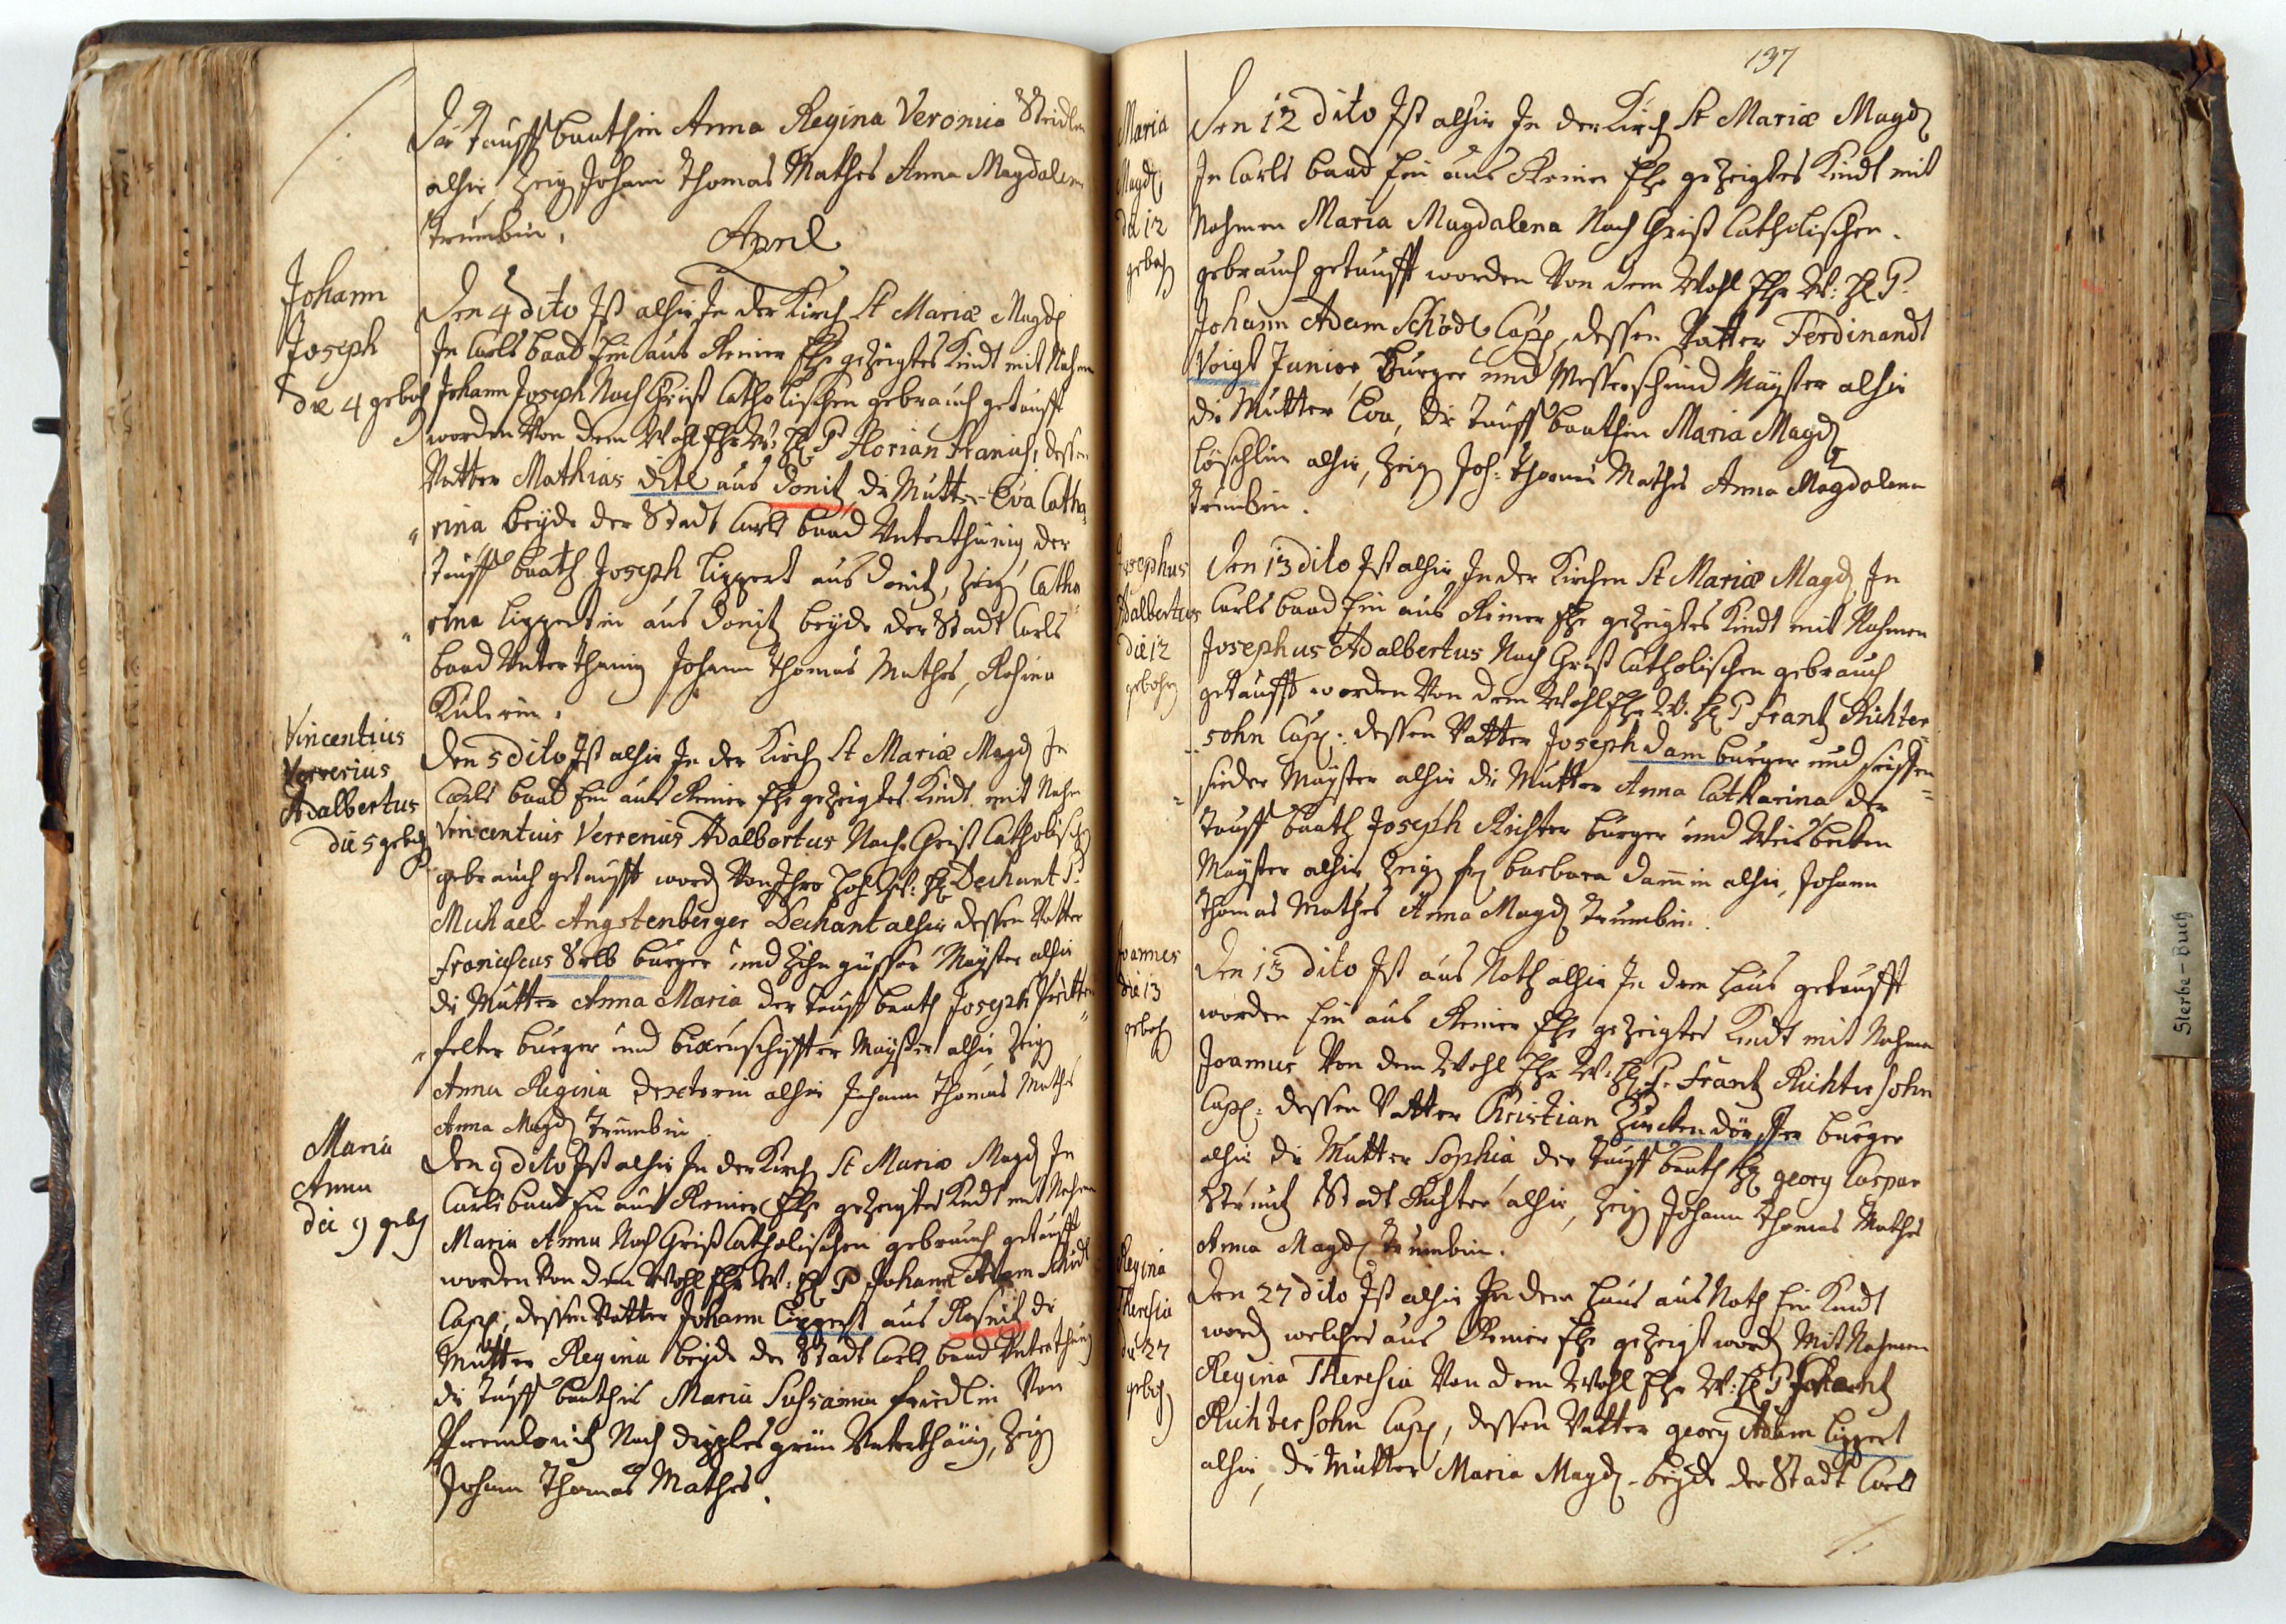 Die Tauff baathin Anna Regina Veronica Steidlin
alhir, Zeig Johann Thomas Mathes Anna Magdalena
Trümbin.
April
Johann
Joseph
die 4 geboh
Den 4 dito Ist alhir In der Kirch St Mariæ Magd
In Carls baad Ein aus Reiner Ehe gezeigtes Kindt mit Nahm
Johann Joseph Nach Christ Catholischen gebrauch getaufft
worden Von dem Wohl Ehr W: H P Florian Franich, dessen
Vatter Mathias ditl aus donitz die Mutter Eva Catha
rina beyde der Stadt Carls baad Unterthänig der
Tauff baath Joseph lippert aus donitz, Zeig Catha
rina lippertin aus donitz beyde der Stadt Carls
baad Unterthänig Johann Thomas Mathes, Rosina
Vincentius
Verrerius
Adalbertus
die 5 geboh
Den 5 dito Ist alhir In der Kirch St Mariæ Magd In
Carls baad Ein aus Reiner Ehe gezeigtes Kindt mit Nahm
Vincentius Verrerius Adalbertus Nach Christ Catholisch
gebrauch getaufft word Von Ihro Hoh W: H Dechant P.
Michael Angstenberger Dechant alhir dessen Vatter
Franciscus Selb burger und Zihn güsser Mayster alhir
die Mutter Anna Maria der Tauff baath Joseph
felter burger und bixenschiffter Mayster alhir Zeig
Anna Regina alhir Johann Thomas Mathes
Anna Magd Trümbin.
Maria
Anna
die 9 geb
Den 9 dito Ist alhir In der Kirch St Mariæ Magd In
Carls baad Ein aus Reiner Ehe gezeigtes Kindt mit Nahm
Maria Anna Nach Christ Catholischen gebrauch getaufft
worden Von dem Wohl Ehr W: H P Johann Adam Schödl
Capp, dessen Vatter Johann lippert aus die
Mutter Regina beyde der Stadt Carls baad Unterthänig
die Tauff baathin Maria Sussanna friedlin Von
Nach Unterthänig, Zeig
Johann Thomas Mathes.
137
Maria
Magd
die 12
geboh
Den 12 dito Ist alhir In der Kirch St Mariæ Magd
In Carls baad Ein aus Reiner Ehe gezeigtes Kindt mit
Nahmen Maria Magdalena Nach Christ Catholischen
gebrauch getaufft worden Von dem Wohl Ehr W: H P
Johann Adam Schödl Capp, dessen Vatter Ferdinandt
Voigt Junior, Burger und Messerschmid Mayster alhir
die Mutter Eva, die Tauff baathin Maria Magd
löschlin alhir, Zeig Joh: Thomas Mathes Anna Magdalena
Trümbin.
Josephus
Adalbertus
die 12
gebohr
Den 13 dito Ist alhir In der Kirchen St Mariæ Magd In
Carls baad Ein aus Reiner Ehe gezeigtes Kindt mit Nahmen
Josephus Adalbertus Nach Christ Catholischen gebrauch
getaufft worden Von dem Wohl Ehr W: H P Frantz Richter
sohn Capp: dessen Vatter Joseph dam burger und seiffen
sieder Mayster alhir die Mutter Anna Catharina der
Tauff baath Joseph Richter burger und Weisbecken
Mayster alhir Zeig fr barbara dam̄in alhir, Johann
Thomas Mathes Anna Magd Trümbin.
Joannes
die 13
geboh
Den 13 dito Ist aus Noth alhir In dem Haus getaufft
worden Ein aus Reiner Ehe gezeigtes Kindt mit Nahmen
Joannes Von dem Wohl Ehr W: H P. Frantz Richtersohn
Capp: dessen Vatter Christian Zurckendörffer burger
alhir die Mutter Sophia der Tauff baath H georg Caspar
Strunz Stadt Richter alhir, Zeig Johann Thomas Mathes
Anna Magd Trümbin.
Regina
Theresia
die 27
geboh
Den 27 dito Ist alhir In dem Haus aus Noth Ein Kindt
word welches aus Reiner Ehe gezeigt word Mit Nahmen
Regina Theresia Von dem Wohl Ehr W: H P Frantz
Richtersohn Capp, dessen Vatter georg Adam lippert
alhir, die Mutter Maria Magd. beyde der Stadt Carls
Sterbe-Buch